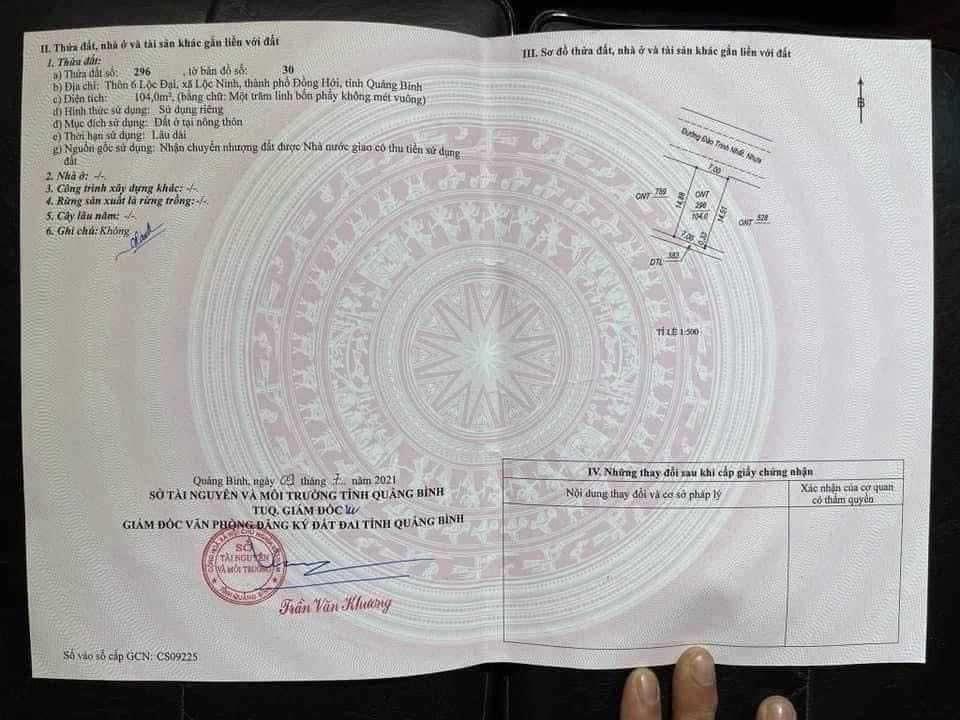 II. Thửa đất, nhà ở và tài sản khác gắn liền với đất
1. Thửa đất:
a) Thửa đất số: 296 , tờ bản đồ số: 30
b) Địa chỉ: Thôn 6 Lộc Đại, xã Lộc Ninh, thành phố Đồng Hới, tỉnh Quảng Bình
c) Diện tích: 104,0m², (bằng chữ: Một trăm linh bốn phẩy không mét vuông)
d) Hình thức sử dụng: Sử dụng riêng
đ) Mục đích sử dụng: Đất ở tại nông thôn
e) Thời hạn sử dụng: Lâu dài
g) Nguồn gốc sử dụng: Nhận chuyển nhượng đất được Nhà nước giao có thu tiền sử dụng
đất
2. Nhà ở: -/-.
3. Công trình xây dựng khác: -/-.
4. Rừng sản xuất là rừng trồng: -/-.
5. Cây lâu năm: -/-.
6. Ghi chú: Không
Quảng Bình, ngày 09 tháng 7 năm 2021
SỞ TÀI NGUYÊN VÀ MÔI TRƯỜNG TỈNH QUẢNG BÌNH
TUQ. GIÁM ĐỐC
GIÁM ĐỐC VĂN PHÒNG ĐĂNG KÝ ĐẤT ĐAI TỈNH QUẢNG BÌNH
SỞ
TÀI NGUYÊN
VÀ MÔI TRƯỜNG
TỈNH QUẢNG BÌNH
Trần Văn Khương
Số vào sổ cấp GCN: CS09225
III. Sơ đồ thửa đất, nhà ở và tài sản khác gắn liền với đất
B
Đường Đào Trinh Nhất, Nhựa
7.00
ONT 789
14.88
ONT
296
104,0
14.51
ONT 528
7.00
0.33
DTL 583
TỈ LỆ 1:500
IV. Những thay đổi sau khi cấp giấy chứng nhận
Nội dung thay đổi và cơ sở pháp lý
Xác nhận của cơ quan
có thẩm quyền